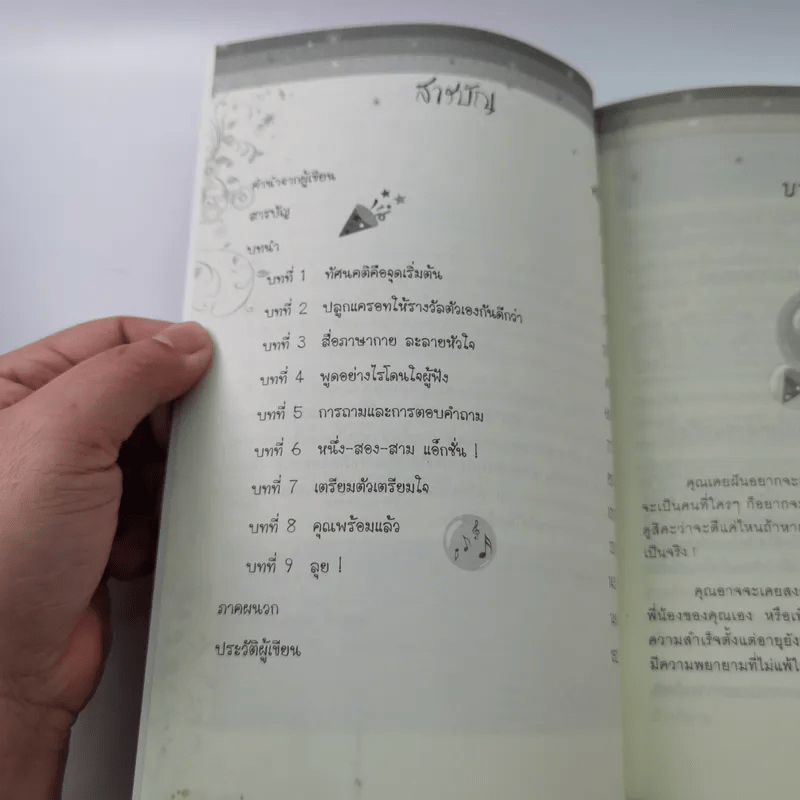 สารบัญ
คำนำจากผู้เขียน
สารบัญ
บทนำ
บทที่ 1 ทัศนคติคือจุดเริ่มต้น
บทที่ 2 ปลูกแครอทให้รางวัลตัวเองกันดีกว่า
บทที่ 3 สื่อภาษากาย ละลายหัวใจ
บทที่ 4 พูดอย่างไรโดนใจผู้ฟัง
บทที่ 5 การถามและการตอบคำถาม
บทที่ 6 หนึ่ง-สอง-สาม แอ็กชั่น !
บทที่ 7 เตรียมตัวเตรียมใจ
บทที่ 8 คุณพร้อมแล้ว
บทที่ 9 ลุย !
ภาคผนวก
ประวัติผู้เขียน
คุณเคยฝันอยากจะ
จะเป็นคนที่ใครๆ ก็อยากจะ
ดูสิคะว่าจะดีแค่ไหนถ้าหา
เป็นจริง !
คุณอาจจะเคยสง
พี่น้องของคุณเอง หรือเพ
ความสำเร็จตั้งแต่อายุยัง
มีความพยายามที่ไม่แพ้ใ